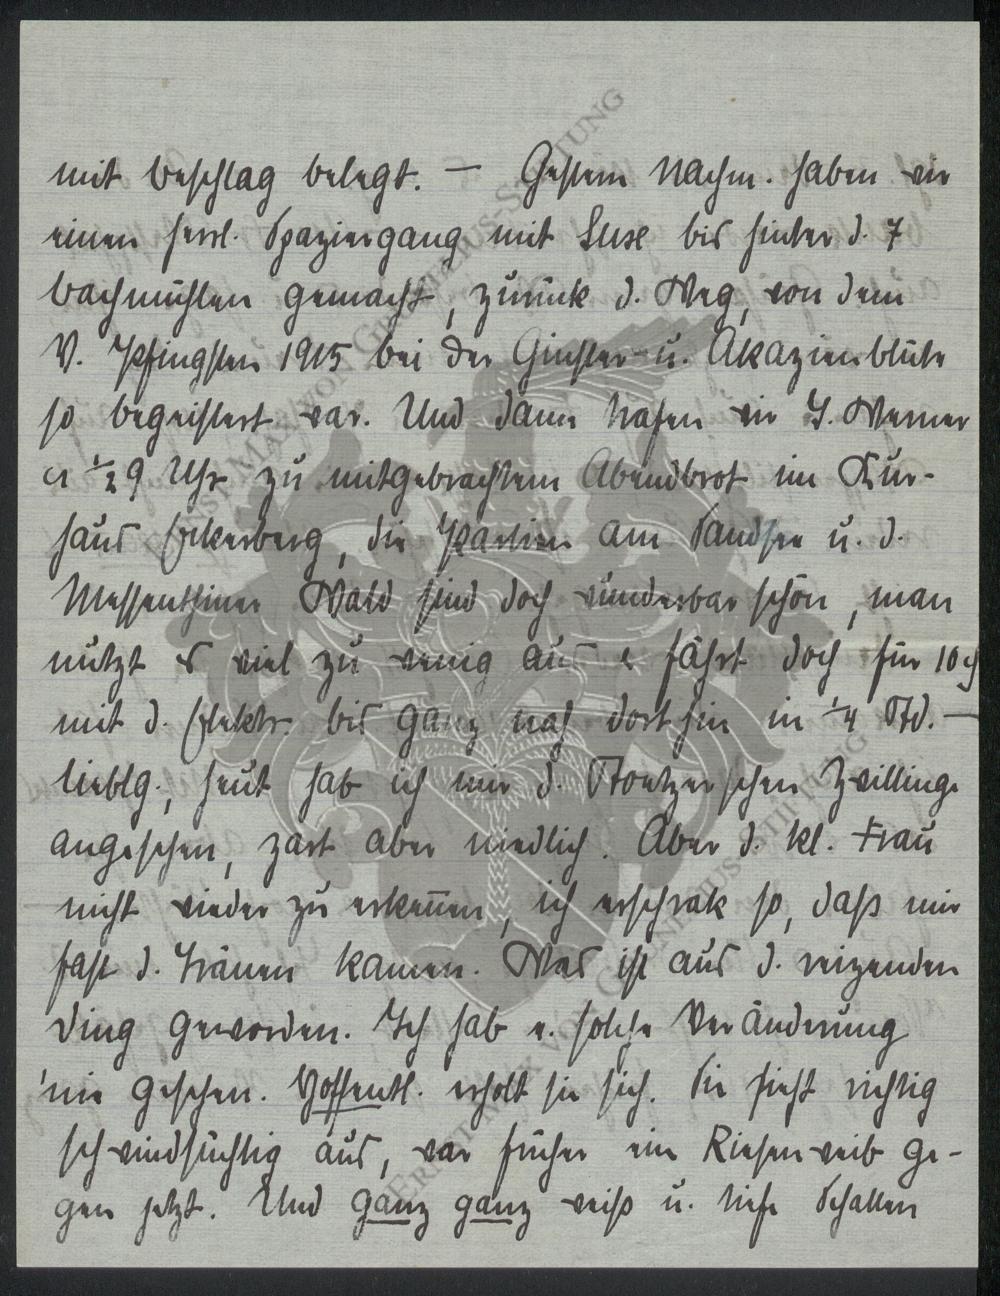 mit Beschlag belegt. — Gestern Nachm. haben wir
einen herrl. Spaziergang mit Suse bis hinter d. 7
Bachmühlen gemacht, zurück d. Weg, von dem
V. Pfingsten 1915 bei der Ginster- u. Akazienblüte
so begeistert war. Und dann trafen wir Werner
½ 9 Uhr zu mitgebrachtem Abendbrot im Kur-
haus Eckerberg, die Partien am Sandsee u. d.
Messenthiner Wald sind doch wunderbar schön, man
nützt es viel zu wenig aus u. fährt doch für 10
mit d. Elektr. bis ganz nah dort hin in ¼ Std. —
Lieblg., heut hab ich mir d. Stoetzerschen Zwillinge
angesehen, zart aber niedlich. Aber d. kl. Frau
nicht wieder zu erkennen, ich erschrak so, daß mir
fast d. Tränen kamen. Was ist aus d. reizenden
Ding geworden. Ich hab e. solche Veränderung
nie gesehen. Hoffentl. erholt sie sich. Sie sieht richtig
schwindsüchtig aus, war früher ein Riesenweib ge-
gen jetzt. Und ganz ganz weiß u. tiefe Schatten
ERNST-MAX-VON GRUMBKOW-STIFTUNG